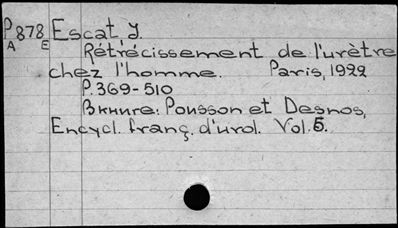 P878 Escat J.
A E Rétrécissement de l'urètre
chez l'homme. Paris, 1922
P. 369-510
Вкниге: Pousson et Desnos,
Encycl. franç. d'urol. Vol. 5.